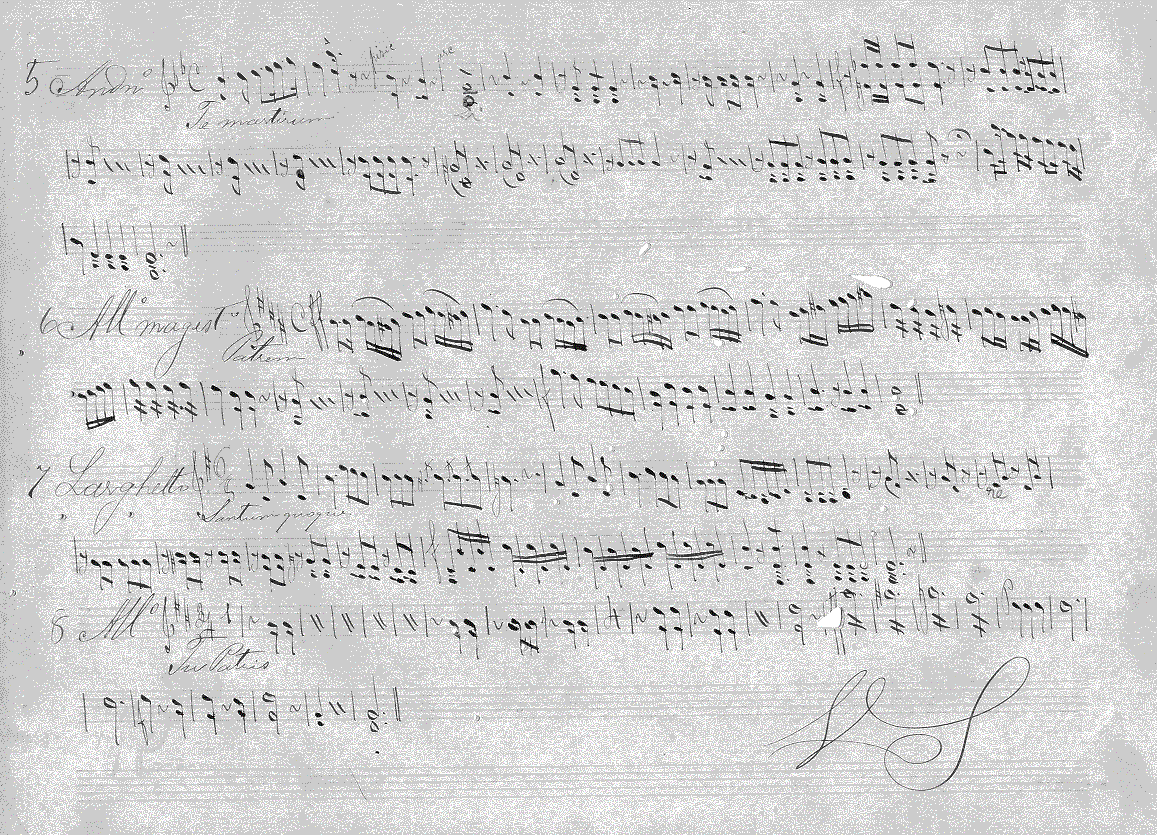 5 Andº
Te martirum
6 All magestº
Patrem
7 Larghetto
Santum quoque
8 Allº
Tu Patris